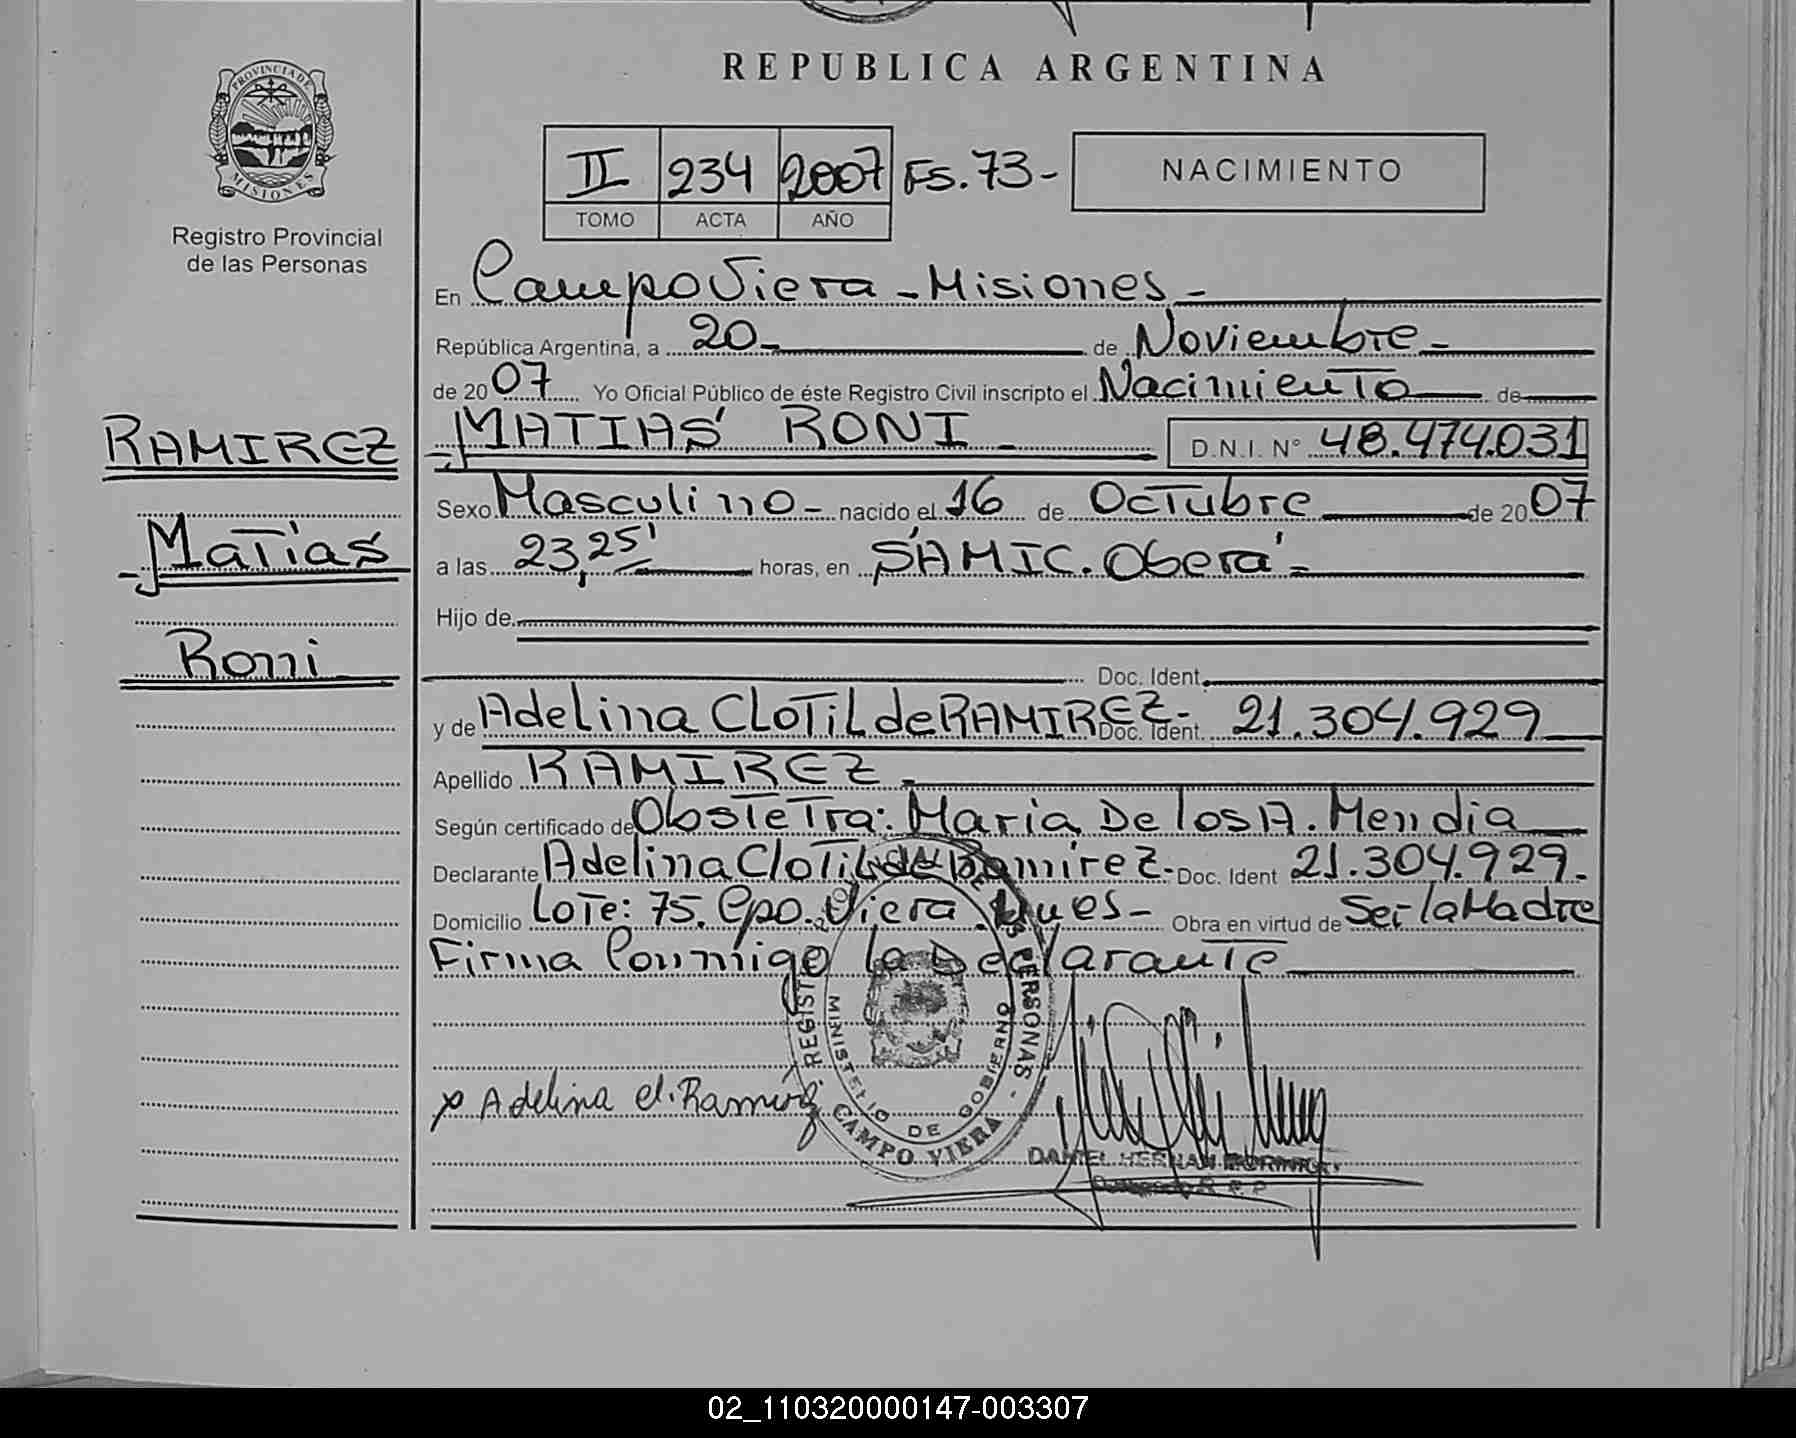 REPUBLICA ARGENTINA
PROVINCIA DE MISIONES
Registro Provincial
de las Personas
II 234 2007 Fs. 73-
TOMO ACTA AÑO
NACIMIENTO
En Campo Viera - Misiones -
República Argentina, a 20- de Noviembre -
de 2007 Yo Oficial Público de éste Registro Civil inscripto el Nacimiento de
RAMIREZ
Matías
Roni
MATIAS RONI - D.N.I. N° 48.474.031
Sexo Masculino - nacido el 16 de Octubre de 2007
a las 23,25' horas, en SAMIC. Oberá -
Hijo de
Doc. Ident.
y de Adelina Clotilde RAMIREZ - Doc. Ident. 21.304.929
Apellido RAMIREZ -
Según certificado de Obstetra: Maria De los A. Mendia
Declarante Adelina Clotilde Ramírez - Doc. Ident 21.304.929.
Domicilio Lote: 75. Cpo. Viera. Mnes - Obra en virtud de Ser la Madre
Firma Conmigo la Declarante
REGISTRO PERSONAS - CAMPO VIERA
MINISTERIO DE GOBIERNO
x Adelina C. Ramírez
DANIEL HERNAN
R. P. P.
02_110320000147-003307